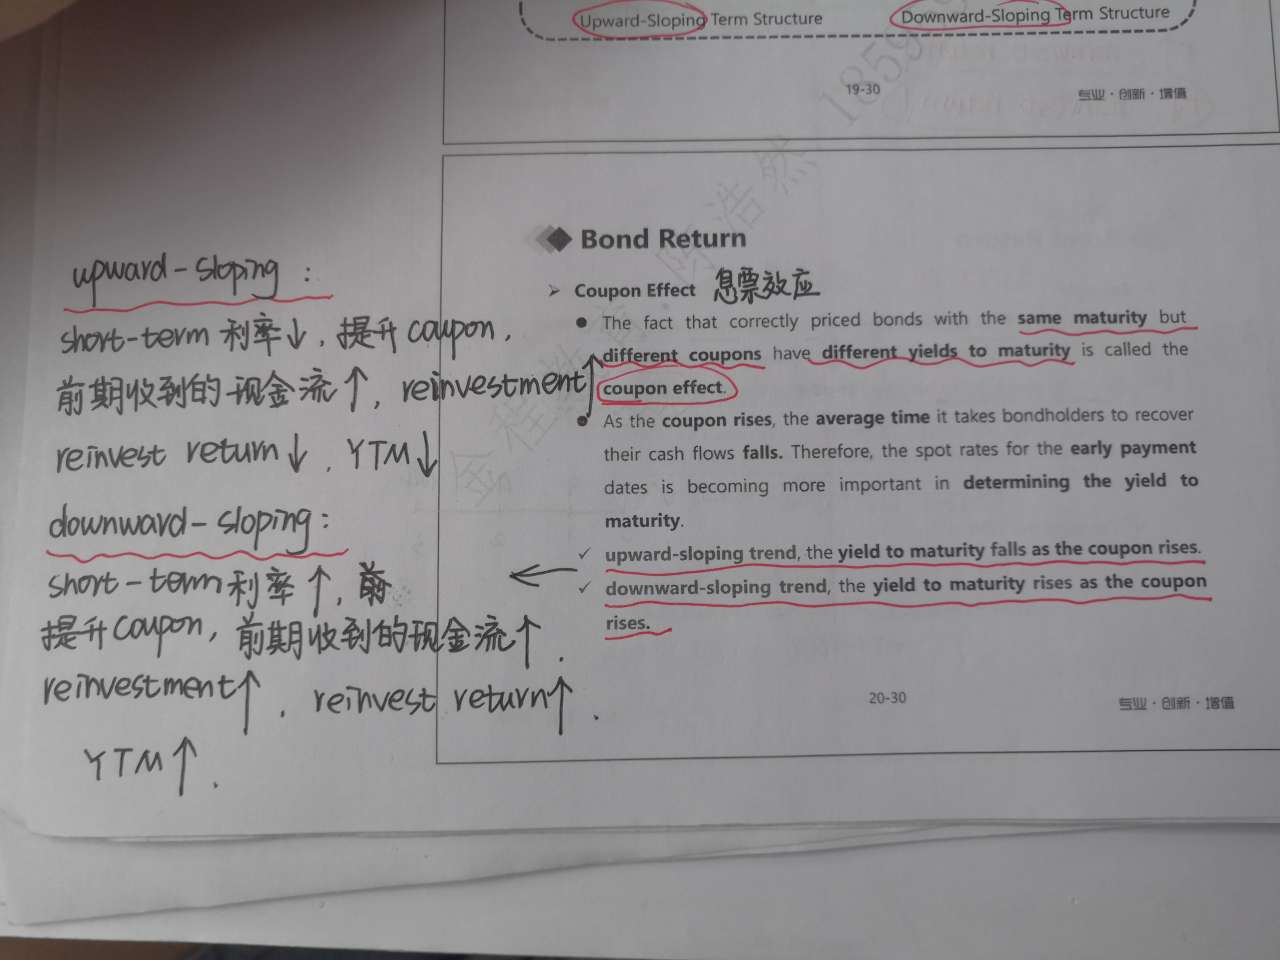 Upward-Sloping Term Structure
Downward-Sloping Term Structure
19-30
专业·创新·增值
Bond Return
Coupon Effect 息票效应
The fact that correctly priced bonds with the same maturity but
different coupons have different yields to maturity is called the
coupon effect.
As the coupon rises, the average time it takes bondholders to recover
their cash flows falls. Therefore, the spot rates for the early payment
dates is becoming more important in determining the yield to
maturity.
✓ upward-sloping trend, the yield to maturity falls as the coupon rises.
✓ downward-sloping trend, the yield to maturity rises as the coupon
rises.
20-30
专业·创新·增值
upward-sloping:
short-term 利率↓, 提升 coupon,
前期收到的现金流↑, reinvestment↑
reinvest return↓, YTM↓
downward-sloping:
short-term 利率↑, 前
提升 coupon, 前期收到的现金流↑.
reinvestment↑, reinvest return↑.
YTM↑.